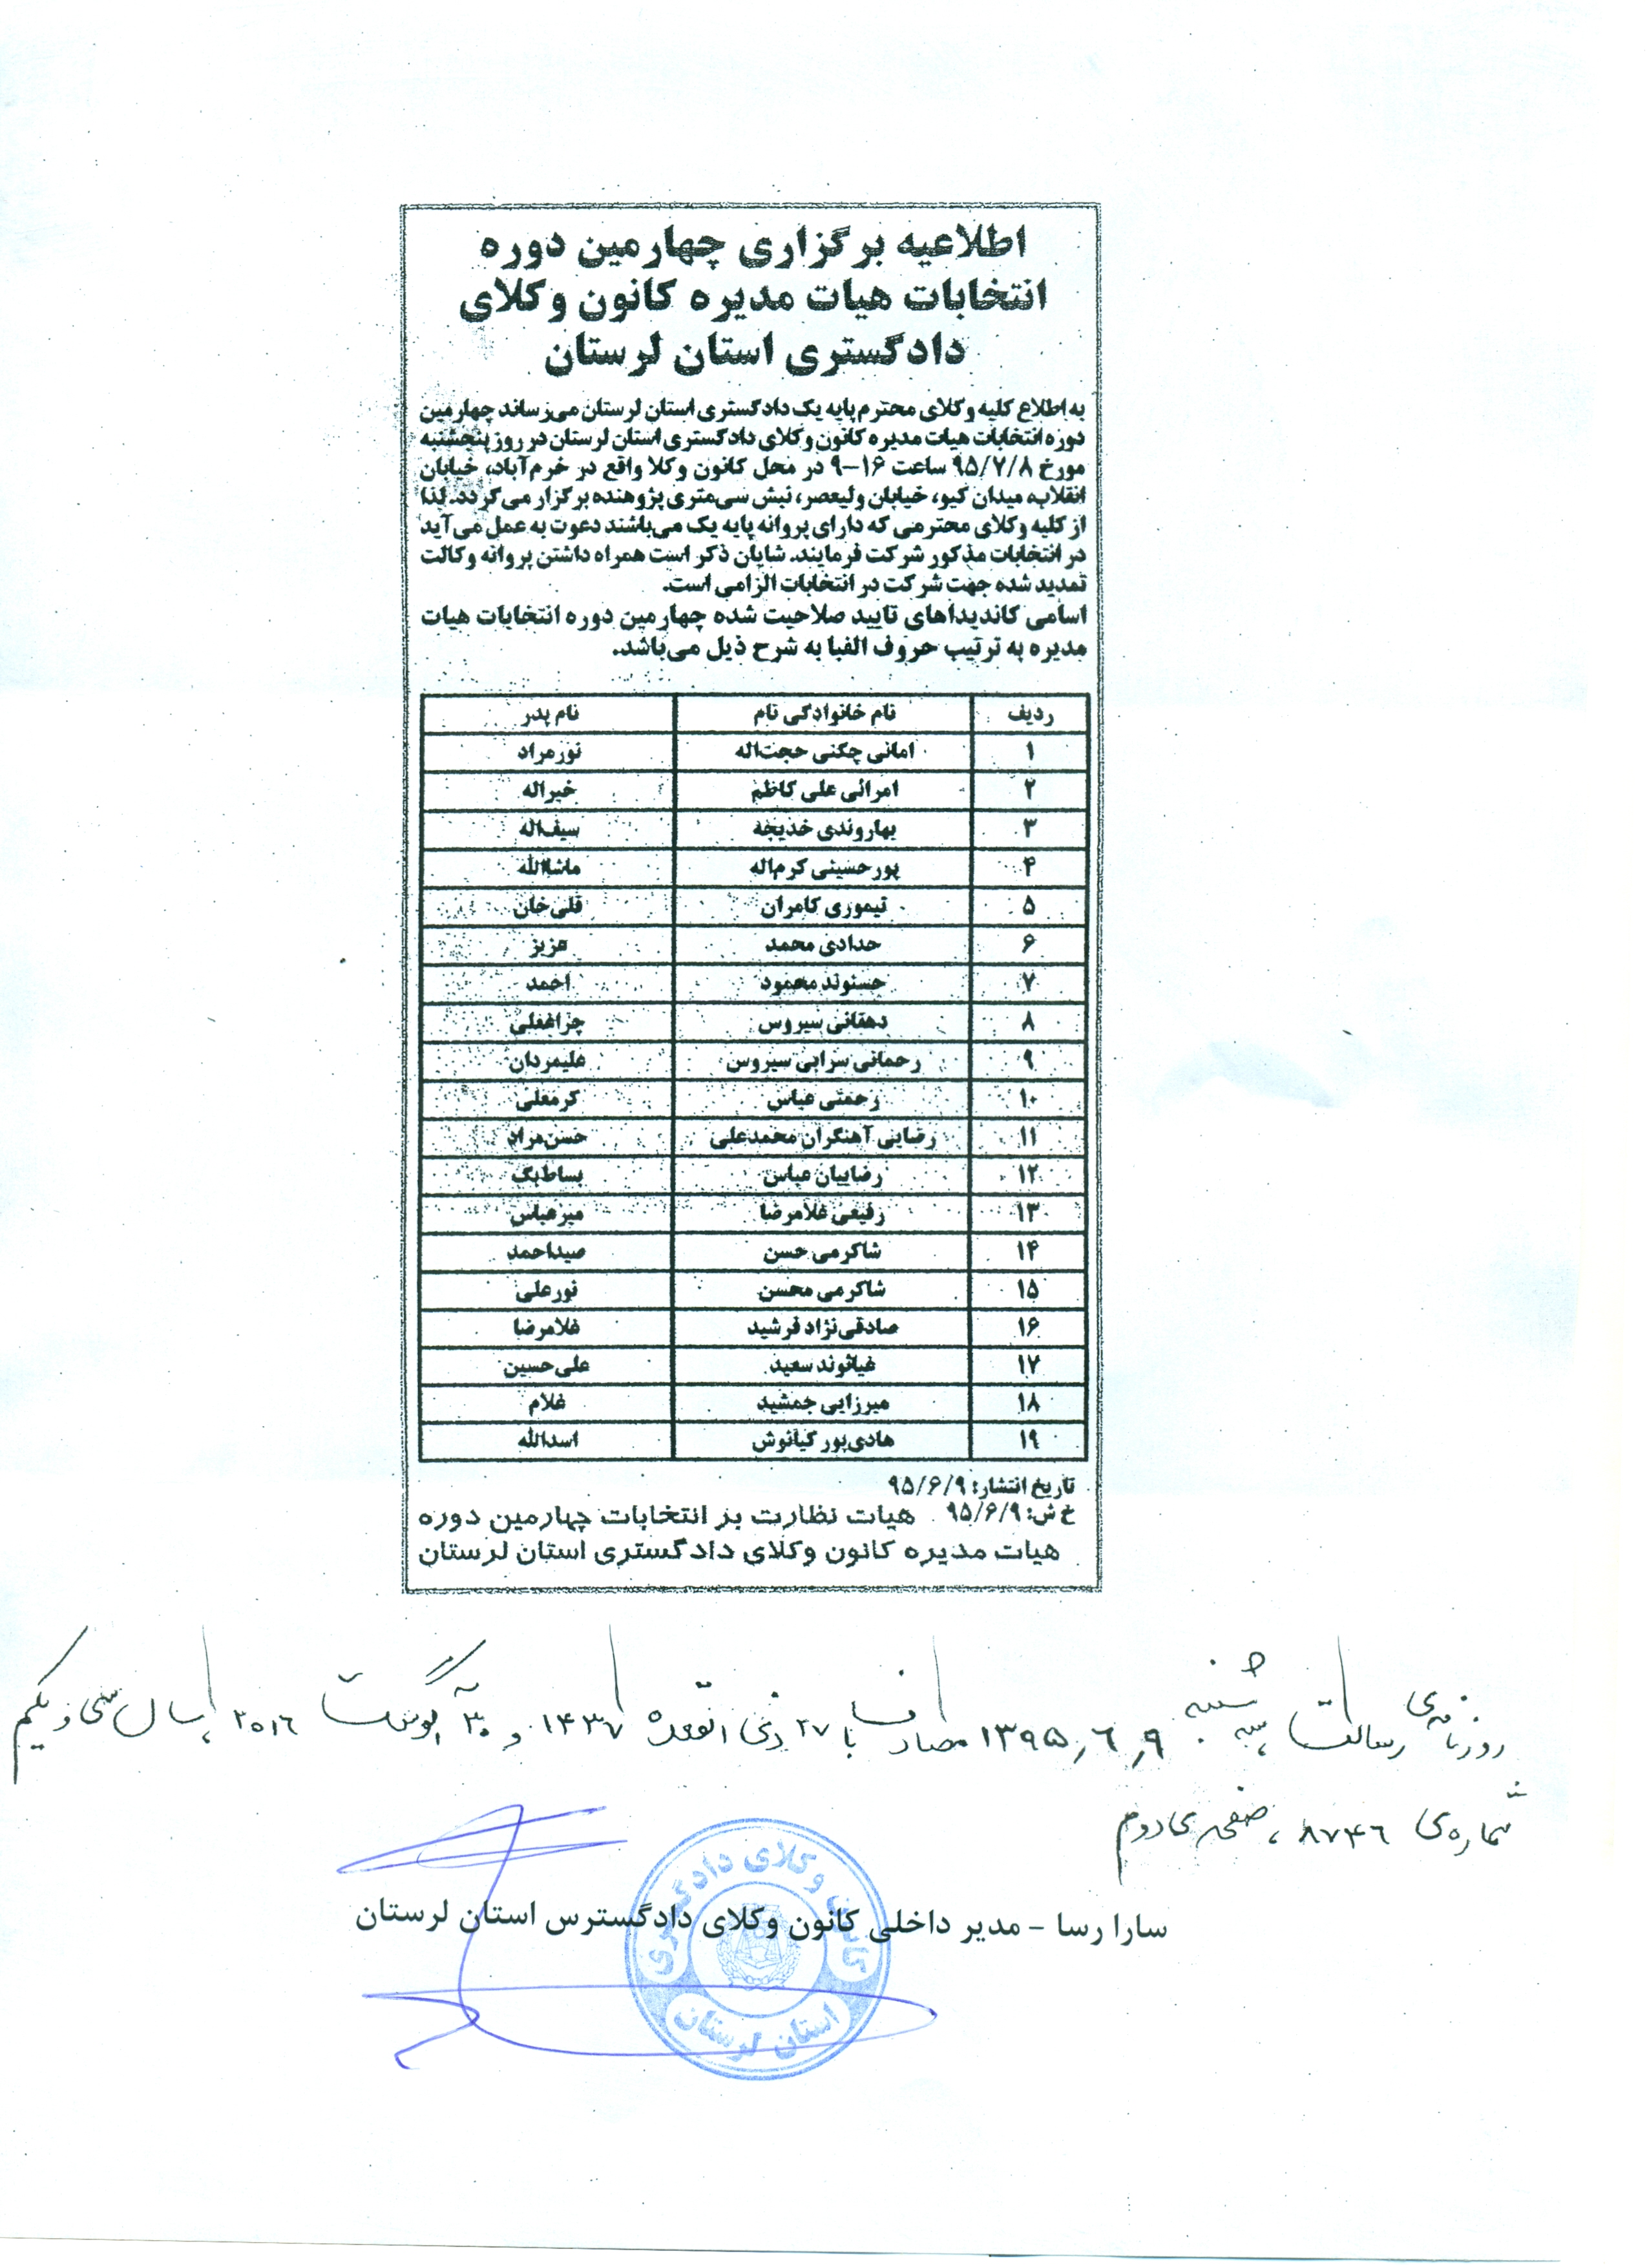 اطلاعیه برگزاری چهارمین دوره
انتخابات هیات مدیره کانون وکلای
دادگستری استان لرستان
به اطلاع کلیه وکلای محترم پایه یک دادگستری استان لرستان می‌رساند چهارمین
دوره انتخابات هیات مدیره کانون وکلای دادگستری استان لرستان در روز پنجشنبه
مورخ ۹۵/۷/۸ ساعت ۱۶-۹ در محل کانون وکلا واقع در خرم‌آباد، خیابان
انقلاب، میدان کیو، خیابان ولیعصر، نبش سی‌متری پژوهنده برگزار می‌گردد. لذا
از کلیه وکلای محترمی که دارای پروانه پایه یک می‌باشند دعوت به عمل می‌آید
در انتخابات مذکور شرکت فرمایند. شایان ذکر است همراه داشتن پروانه وکالت
تمدید شده جهت شرکت در انتخابات الزامی است.
اسامی کاندیداهای تایید صلاحیت شده چهارمین دوره انتخابات هیات
مدیره به ترتیب حروف الفبا به شرح ذیل می‌باشد.
ردیف نام خانوادگی نام نام پدر
۱ امانی چگنی حجت‌اله نورمراد
۲ امرائی علی کاظم خیراله
۳ بهاروندی خدیجه سیف‌اله
۴ پورحسینی کرم‌اله ماشاالله
۵ تیموری کامران قلی‌خان
۶ حدادی محمد عزیز
۷ حسنوند محمود احمد
۸ دهقانی سیروس چراغعلی
۹ رحمانی سرابی سیروس علیمردان
۱۰ رحمتی عباس کرمعلی
۱۱ رضایی آهنگران محمدعلی حسن‌مراد
۱۲ رضاییان عباس بساط‌بگ
۱۳ رفیعی غلامرضا میرعباس
۱۴ شاکرمی حسن صیداحمد
۱۵ شاکرمی محسن نورعلی
۱۶ صادقی‌نژاد فرشید غلامرضا
۱۷ غیاثوند سعید علی‌حسین
۱۸ میرزایی جمشید غلام
۱۹ هادی‌پور کیانوش اسدالله
تاریخ انتشار: ۹۵/۶/۹
خ ش: ۹۵/۶/۹ هیات نظارت بر انتخابات چهارمین دوره
هیات مدیره کانون وکلای دادگستری استان لرستان
روزنامه‌ی رسالت، سه شنبه ۱۳۹۵٫۶٫۹ مصادف با ۲۷ ذی القعده ۱۴۳۷ و ۳۰ آگوست ۲۰۱۶، سال سی و یکم
شماره‌ی ۸۷۴۶، صفحه‌ی دوم
سارا رسا - مدیر داخلی کانون وکلای دادگسترس استان لرستان
کانون وکلای دادگستری
استان لرستان